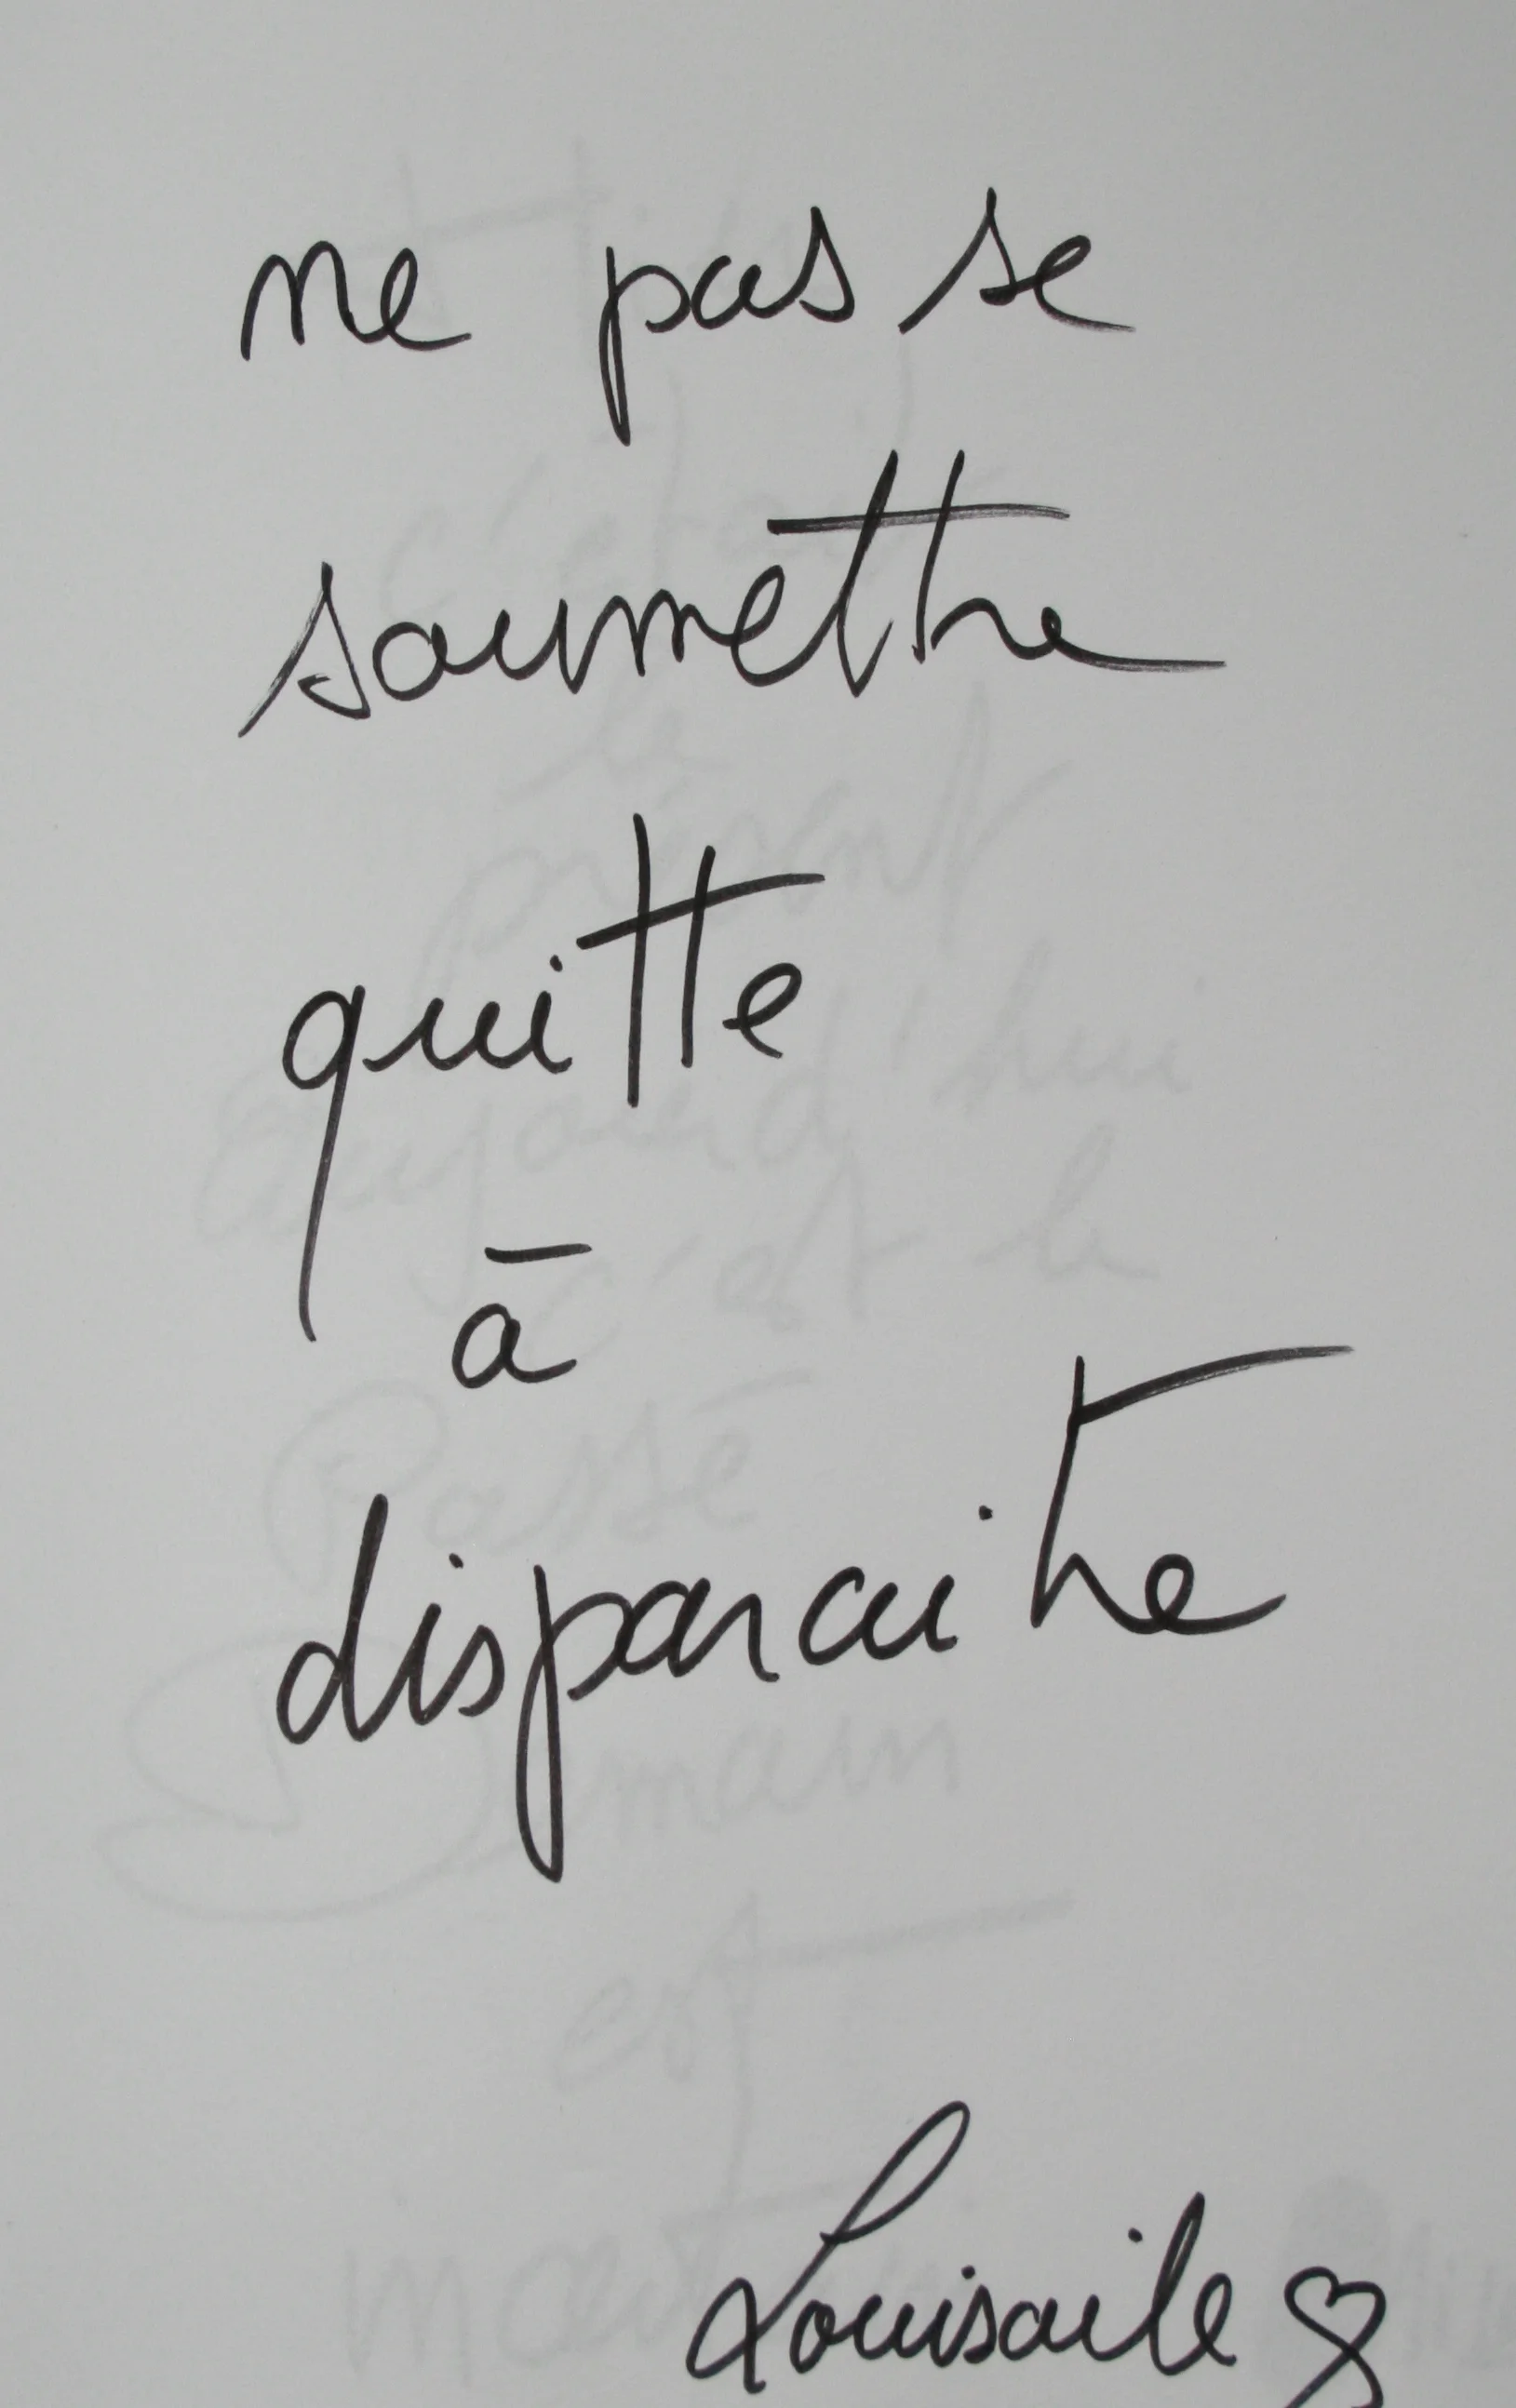 ne pas se
soumettre
quitte
à
disparaitre
Louisaile